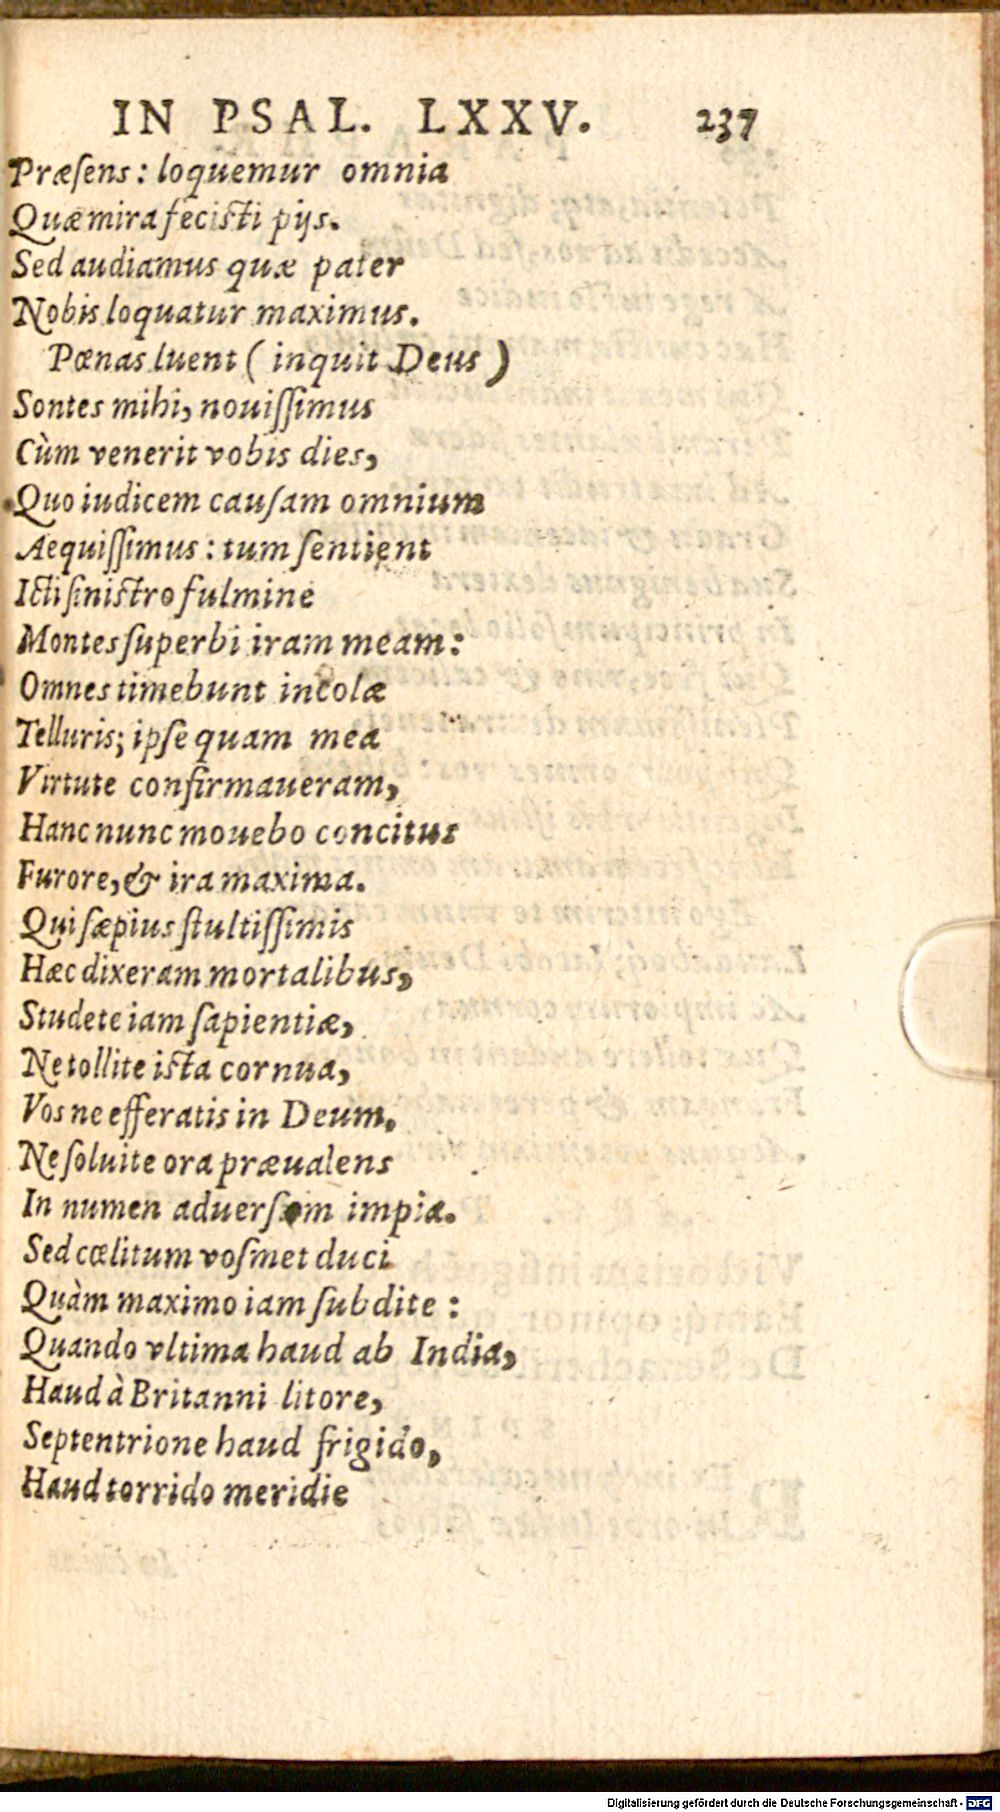 IN PSAL. LXXV. 237
Præſens: loquemur omnia
Quæ mira fecisti pijs.
Sed audiamus quæ pater
Nobis loquatur maximus.
Pœnas luent ( inquit Deus )
Sontes mihi, nouiſſimus
Cùm venerit vobis dies,
Quo iudicem cauſam omnium
Aequiſſimus: tum ſentient
Icti ſinistro fulmine
Montes ſuperbi iram meam:
Omnes timebunt incolæ
Telluris; ipſe quam mea
Virtute confirmaueram,
Hanc nunc mouebo concitus
Furore, & ira maxima.
Qui ſæpius ſtultiſſimis
Hæc dixeram mortalibus,
Studete iam ſapientiæ,
Ne tollite ista cornua,
Vos ne efferatis in Deum,
Ne ſoluite ora præualens
In numen aduerſum impia.
Sed cœlitum voſmet duci
Quàm maximo iam ſubdite :
Quando vltima haud ab India,
Haud à Britanni litore,
Septentrione haud frigido,
Haud torrido meridie
Digitalisierung gefördert durch die Deutsche Forschungsgemeinschaft - DFG